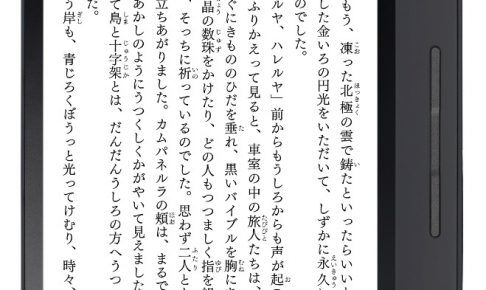 もう、凍った北極の雲で鋳たといったらいい
した金いろの円光をいただいて、しずかに永久
のでした。
ルヤ、ハレルヤ」前からもうしろからも声が起
ふりかえって見ると、車室の中の旅人たちは、
ぐにきもののひだを垂れ、黒いバイブルを胸に
晶の数珠をかけたり、どの人もつつましく指を組
、そっちに祈っているのでした。思わず二人と
立ちあがりました。カムパネルラの頬は、まるで
あかしのようにうつくしくかがやいて見えました
て島と十字架とは、だんだんうしろの方へうつ
た。
う岸も、青じろくぼうっと光ってけむり、時々、